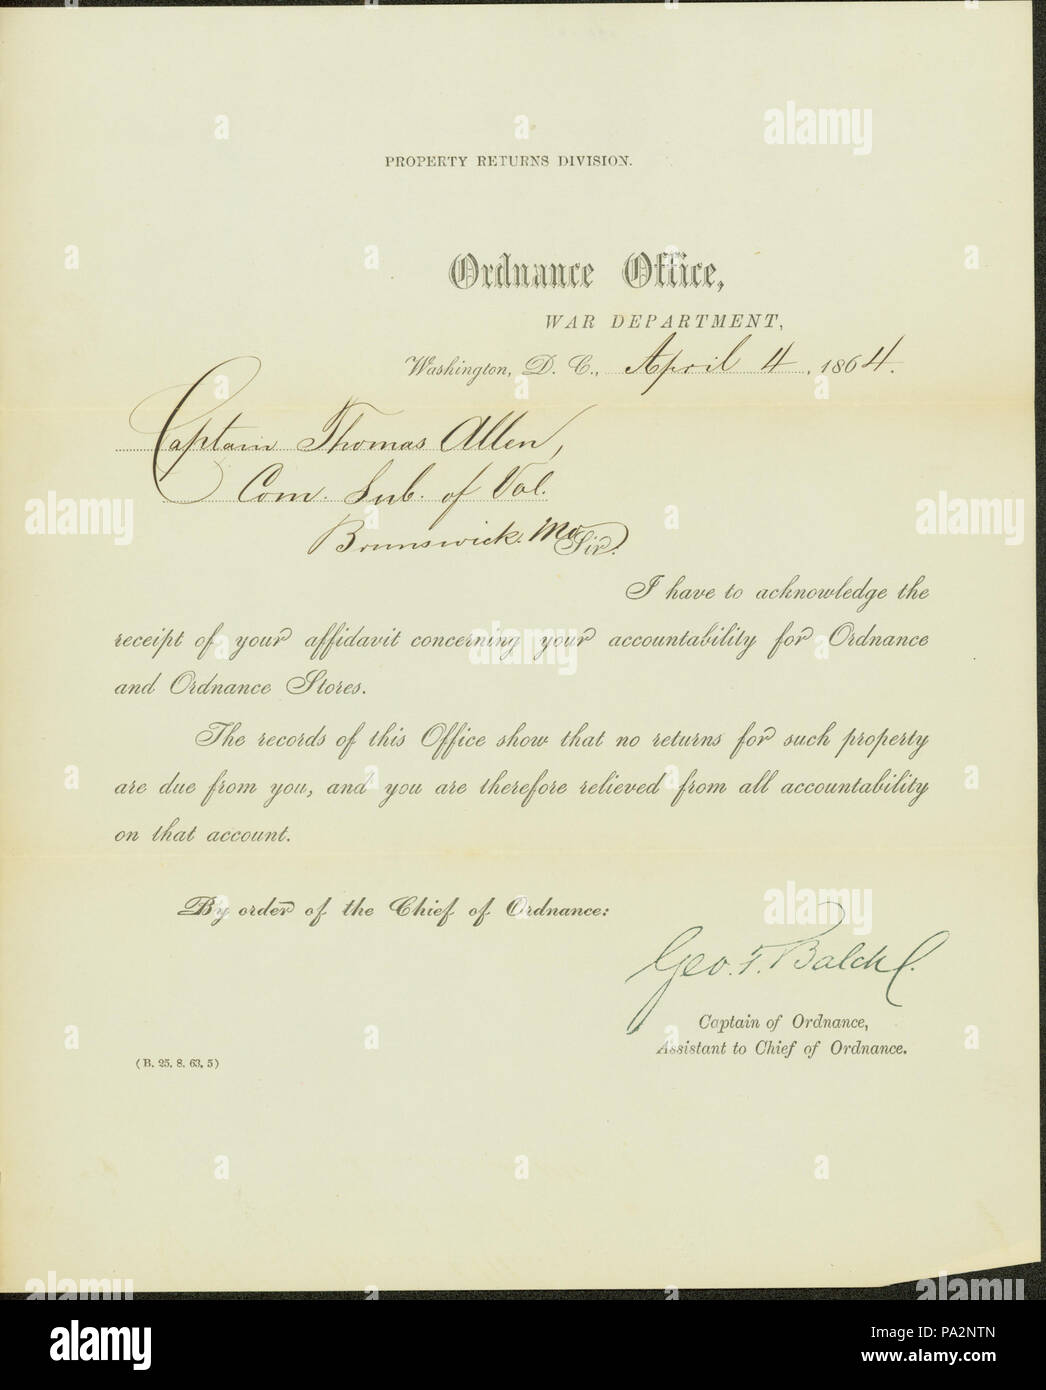 PROPERTY RETURNS DIVISION.
Ordnance Office,
WAR DEPARTMENT,
Washington, D. C., April 4, 1864.
Captain Thomas Allen,
Com. Sub. of Vol.
Brunswick. Mo
Sir:
I have to acknowledge the
receipt of your affidavit concerning your accountability for Ordnance
and Ordnance Stores.
The records of this Office show that no returns for such property
are due from you, and you are therefore relieved from all accountability
on that account.
By order of the Chief of Ordnance:
Geo. T. Balch
Captain of Ordnance,
Assistant to Chief of Ordnance.
(B. 25, 8, 63, 5)
alamy
PA2NTN
www.alamy.com